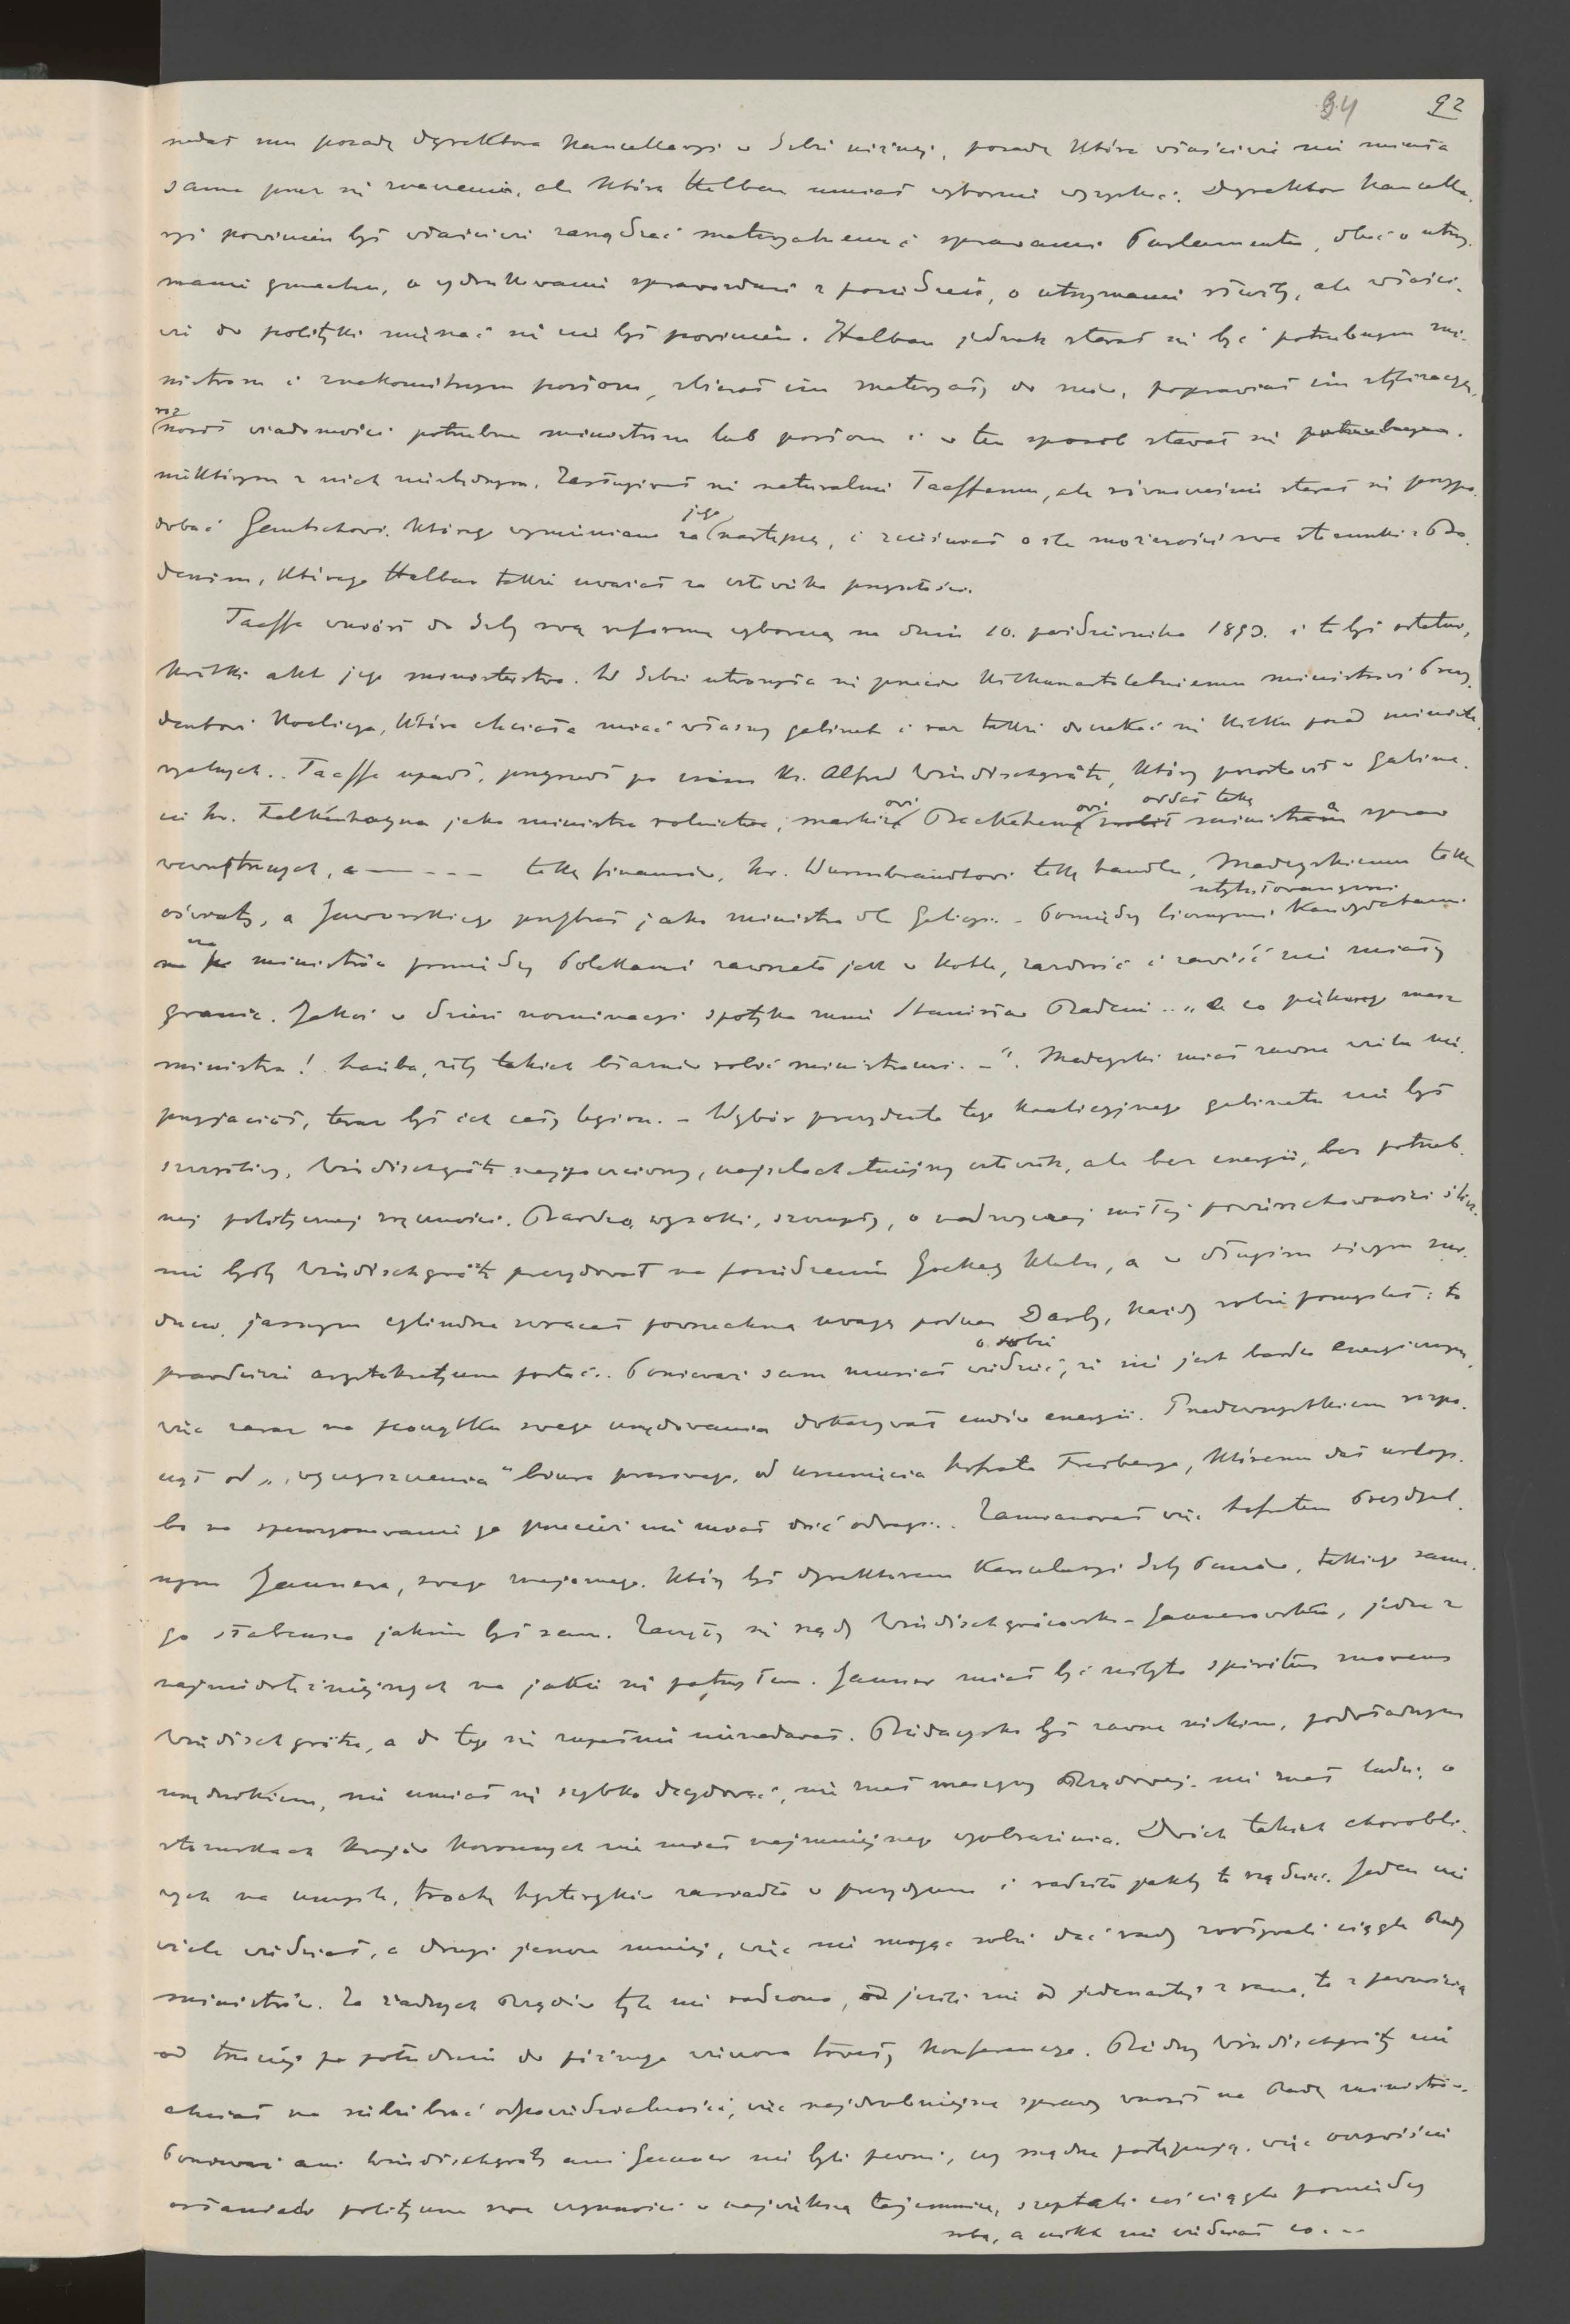 94 92
nadał mu posadę dyrektora Kancellaryi w Izbie niższej, posadę która właściwie nie miała
sama przez się znaczenia, ale którą Halban umiał wybornie wyzyskać. Dyrektor Kancella-
ryi powinien był właściwie zarządzać materyalnemi sprawami Parlamentu, dbać o utrzy-
manie gmachu, o wydrukowanie sprawozdań z posiedzeń, o utrzymanie służby, ale właści-
wie do polityki mięszać się nie był powinien. Halban jednak starał się być potrzebnym mi-
nistrom i znakomitszym posłom, zbierał im materyały do mów, poprawiał im stylizacyę,
nosił wiadomości potrzebne ministrom lub posłom i w ten sposób stawał się potrzebnym
niektórym z nich niezbędnym. Zasługiwał się naturalnie Taaffemu, ale równocześnie starał się przypo-
dobać Gautschowi, którego wymieniano za jego następcę, i zacieśniał o ile możności swe stosunki z Ba-
denim, którego Halban także uważał za człowieka przyszłości.
Taaffe wniósł do Izby swą reformę wyborczą na dniu 10. października 1893. i to był ostatni,
krótki akt jego ministerstwa. W Izbie utworzyła się przeciw kilkunastoletniemu ministrowi Prezy-
dentowi Koalicya, która chciała mieć własny gabinet i raz także doczekać się kilku posad ministe-
ryalnych.. Taaffe upadł, przyszedł po nim ks. Alfred Windischgrätz, który pozostawił w gabine-
cie hr. Falkenhayna jako ministra rolnictwa, markizowi Bacquehemowi oddał tekę ministra spraw
wewnętrznych, a — - - - tekę finansów, hr. Wurmbrandtowi tekę handlu, Madeyskiemu tekę
oświaty, a Jaworskiego przybrał jako ministra dla Galicyi. - Pomiędzy licznymi utytułowanymi kandydatami
na ministrów pomiędzy Polakami zawrzało jak w kotle, zazdrość i zawiść nie miały
granic. Jakoś w dzień nominacyi spotyka mnie Stanisław Badeni.. „A co pięknego masz
ministra! hańba, żeby takich błaznów robić ministrami. -“. Madeyski miał zawsze wielu nie-
przyjaciół, teraz był ich cały legion. - Wybór prezydenta tego koalicyjnego gabinetu nie był
szczęśliwy, Windischgrätz najpoczciwszy, najszlachetniejszy człowiek, ale bez energii, bez potrzeb-
nej politycznej zręczności. Bardzo wysoki, szczupły, o nadzwyczaj miłej powierzchowności ślicz-
nie byłby Windischgrätz prezydował na posiedzeniu Jockey Klubu, a w długim siwym sur-
ducie, jasnym cylindrze zwracał powszechną uwagę podczas Derby, każdy sobie pomyślał: to
prawdziwie arystokratyczna postać.. Ponieważ sam musiał o sobie wiedzieć, że nie jest bardzo energicznym,
więc zaraz na początku swego urzędowania dokazywał cudów energii. Przedewszystkiem rozpo-
czął od „wyczyszczenia“ biura prasowego, od usunięcia hofrata Freiberga, któremu dał urlop,
bo na spensyonowanie go przecież nie miał dość odwagi.. Zamianował więc hofratem Prezydyal-
nym Jaunera, swego znajomego, który był dyrektorem Kancelaryi Izby Panów, takiego same-
go słabeusza jakim był sam. Zaczęły się rządy Windischgräcowsko-Jaunerowskie, jedne z
najniedołężniejszych na jakie się patrzyłem. Jauner miał być niby to spiritus movens
Windischgrätza, a do tego się zupełnie nie nadawał. Biedaczysko był zawsze nickim, podwładnym
urzędnikiem, nie umiał się szybko decydować, nie znał maszyny rządowej, nie znał ludzi, o
stosunkach krajów koronnych nie miał najmniejszego wyobrażenia. Dwóch takich chorobli-
wych na umyśle, trochę histeryków zasiadło w prezydyum i radziło jakby to rządzić. Jeden nie
wiele wiedział, a drugi jeszcze mniej, więc nie mogąc sobie dać rady zwoływali ciągle Rady
ministrów. Za żadnych rządów tyle nie radzono, jeżeli nie od jedenastej z rana, to z pewnością
od trzeciej po południu do późnego wieczora trwały konferencye. Biedny Windischgrätz nie
chciał na siebie brać odpowiedzialności, więc najdrobniejsze sprawy wnosił na Radę ministrów.
Ponieważ ani Windischgrätz ani Jauner nie byli pewni, czy mądrze postępują, więc oczywiście
osłaniali polityczne swe czynności w największą tajemnicę, szeptali coś ciągle pomiędzy
sobą, a nikt nie wiedział co. --